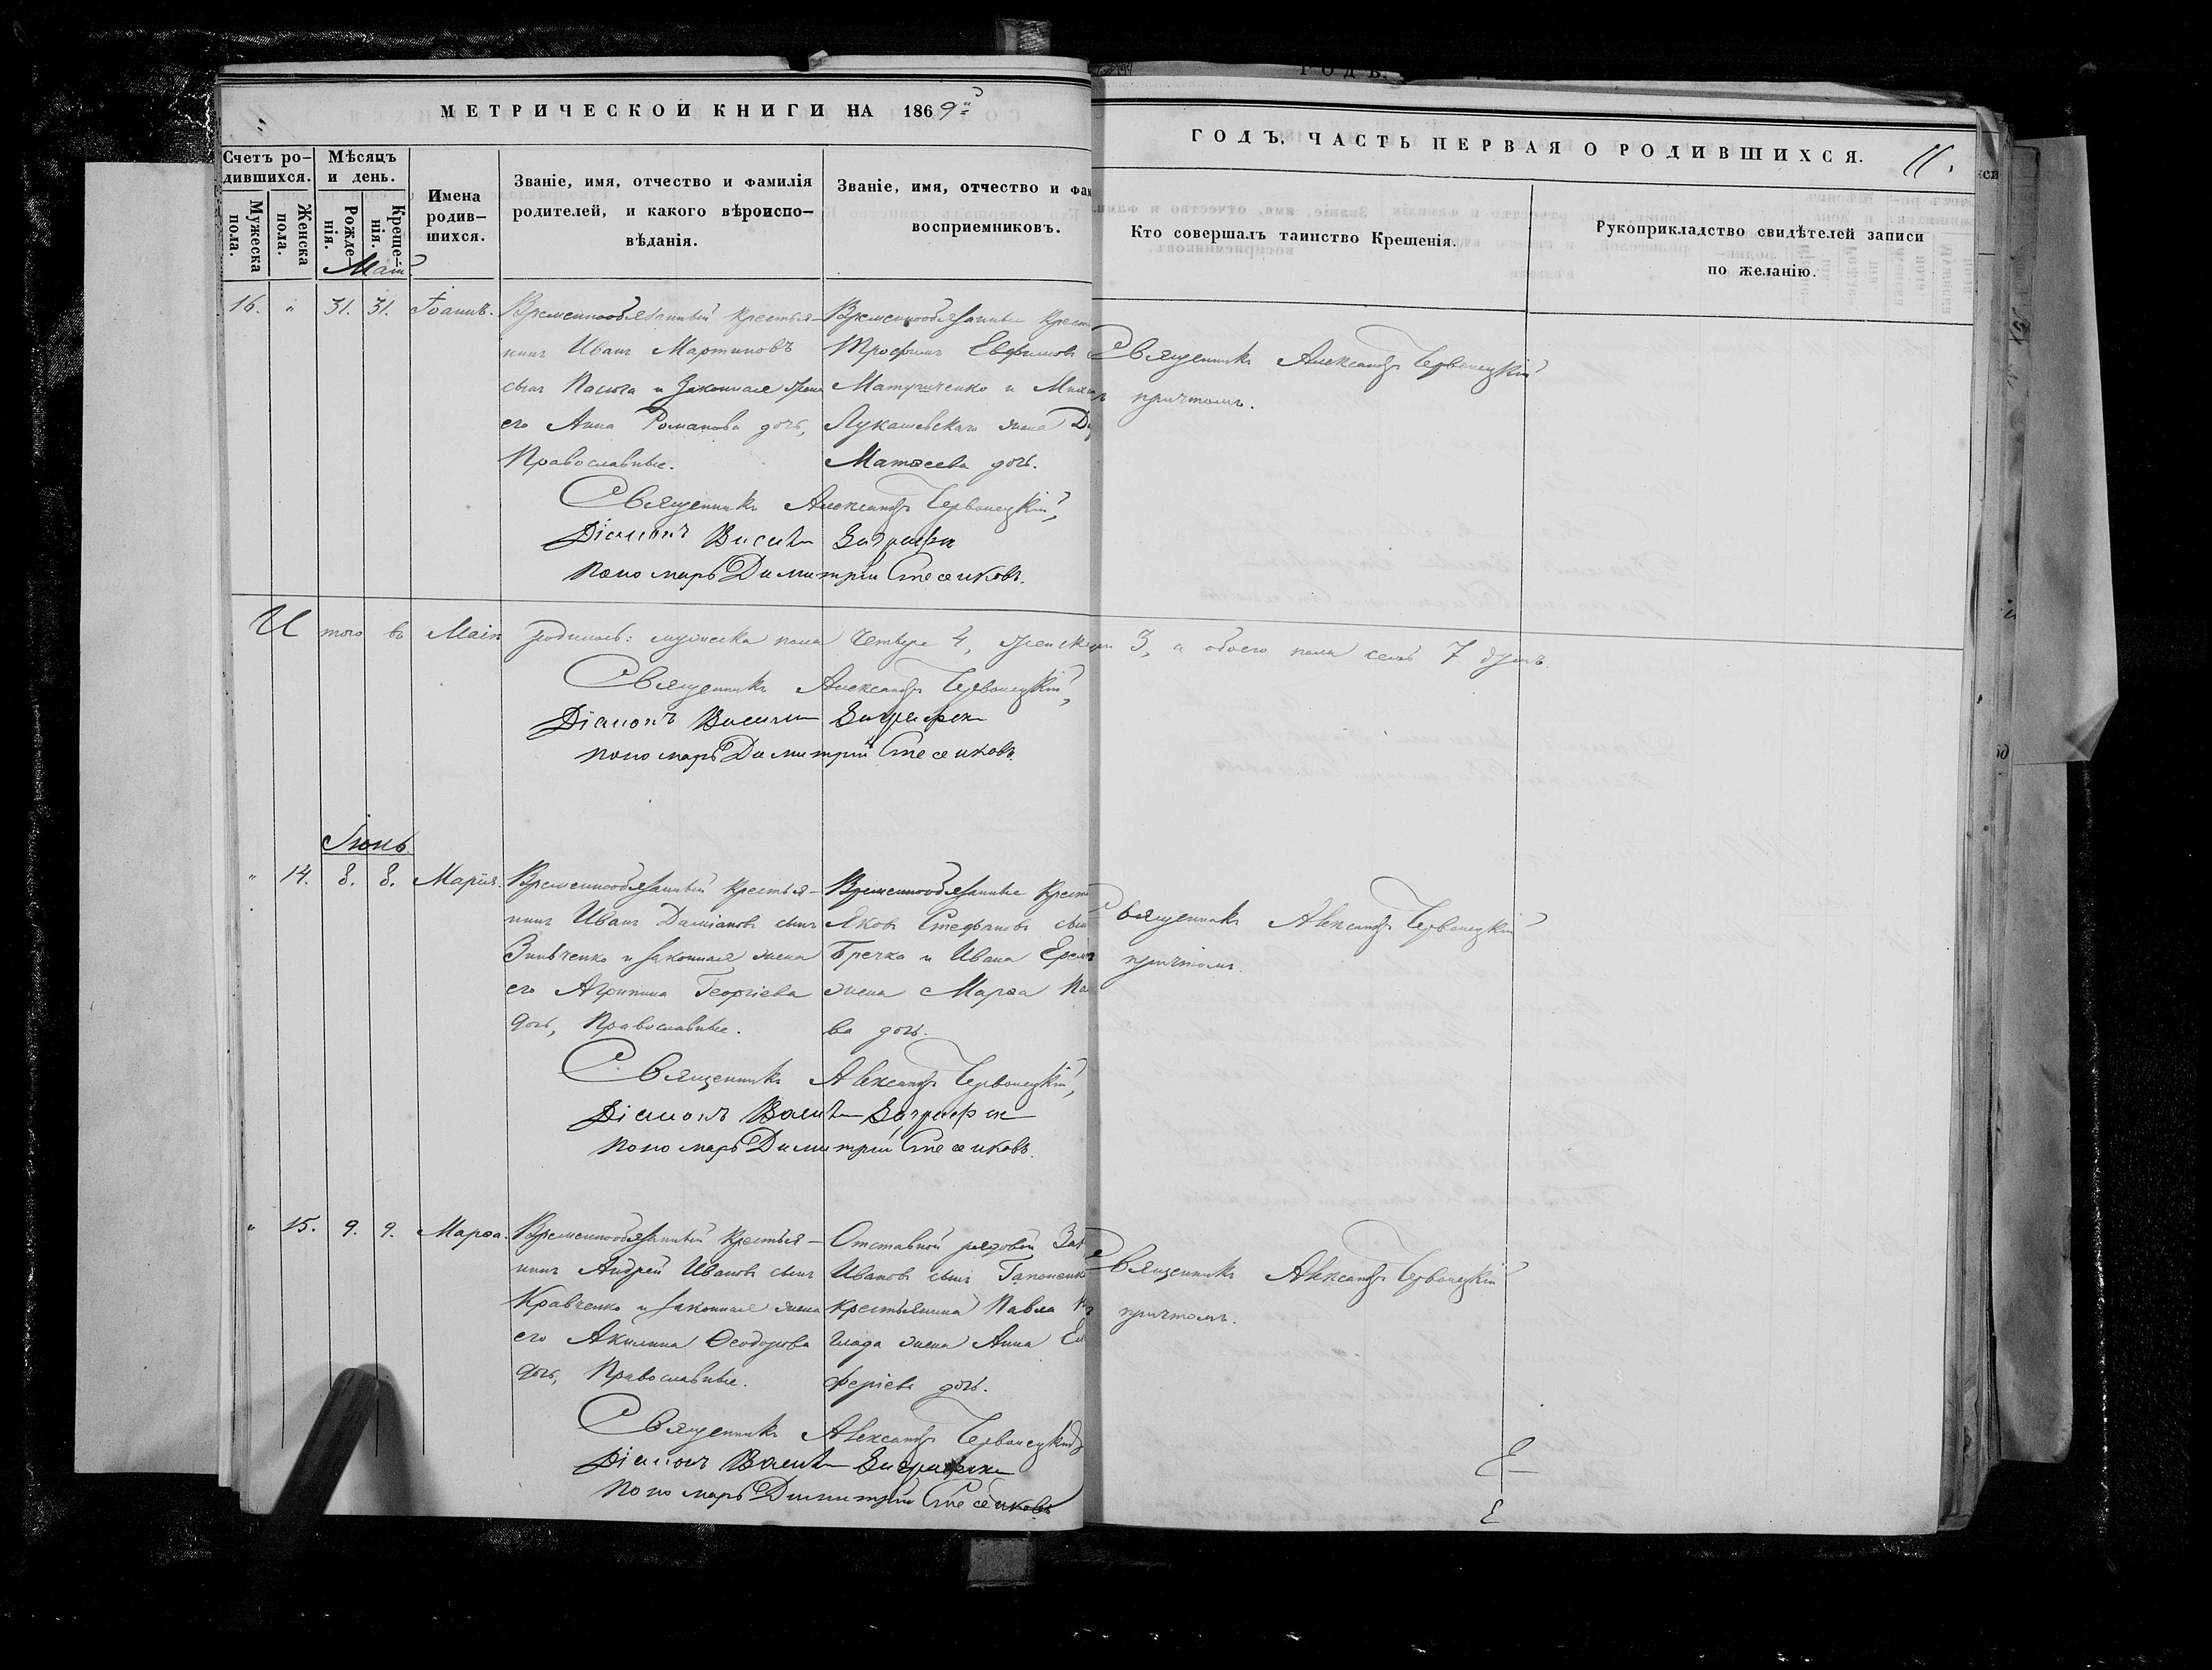 МЕТРИЧЕСКОЙ КНИГИ НА 1869й
ГОДЪ. ЧАСТЬ ПЕРВАЯ О РОДИВШИХСЯ. 11.
Счетъ ро-
дившихся.
Мужеска
пола.
Женска
пола.
Мѣсяцъ
и день.
Рожде-
нія.
Креще-
нія.
Имена
родив-
шихся.
Званіе, имя, отчество и фамилія
родителей, и какого вѣроиспо-
вѣданія.
Званіе, имя, отчество и фам
восприемниковъ.
Кто совершалъ таинство Крещенія.
Рукоприкладство свидѣтелей записи
по желанію.
Май.
16. " 31. 31. Іоаннъ.
Временнообязанный крестья-
нинъ Иванъ Мартиновъ
сынъ Пасюга и законная жена
его Анна Романова дочь,
Православные.
Временнообязанные крест
Трофимъ Евфимовъ
Матушенко и Миха
Лукашевскаго жена
Матѳеева дочь.
Священникъ Александръ Червонецкій
причтомъ.
Священникъ Александръ Червонецкій,
Діаконъ Василій
Пономарь Димитрій Стесенковъ.
Итого въ Маіи родилось: мужеска пола четверо 4, женска 3, а обоего пола семь 7 душъ.
Священникъ Александръ Червонецкій,
Діаконъ Василій
Пономарь Димитрій Стесенковъ.
Іюнь.
" 14. 8. 8. Марія.
Временнообязанный крестья-
нинъ Иванъ Даміановъ сынъ
Зинченко и законная жена
его Агрипина Георгіева
дочь, Православные.
Временнообязанные крест
Яковъ Стефановъ сын
Гречка и Ивана Ерем
жена Марѳа Па
ва дочь.
Священникъ Александръ Червонецкій
причтомъ.
Священникъ Александръ Червонецкій,
Діаконъ Василій
Пономарь Димитрій Стесенковъ.
" 15. 9. 9. Марѳа.
Временнообязанный крестья-
нинъ Андрей Ивановъ сынъ
Кравченко и законная жена
его Акилина Ѳеодорова
дочь, Православные.
Отставной рядовой Зах
Ивановъ сынъ Гапоненко
крестьянина Павла
глада жена Анна Ел
феріева дочь.
Священникъ Александръ Червонецкій
причтомъ.
Священникъ Александръ Червонецкій
Діаконъ Василій
Пономарь Димитрій Стесенковъ